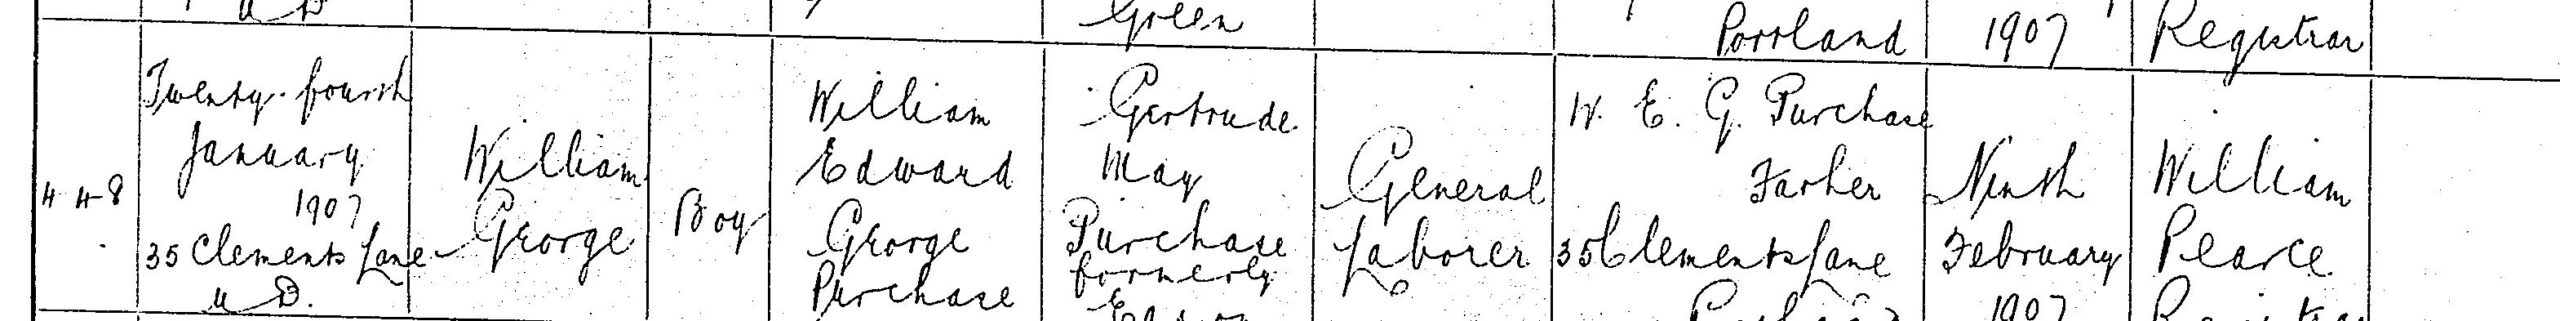 U D
Green
Portland
1907
Registrar
448
Twenty-fourth
January
1907
35 Clements Lane
U D.
William
George
Boy
William
Edward
George
Purchase
Gertrude
May
Purchase
formerly
General
Laborer
W. E. G. Purchase
Father
35 Clements Lane
Portland
Ninth
February
1907
William
Pearce
Registrar